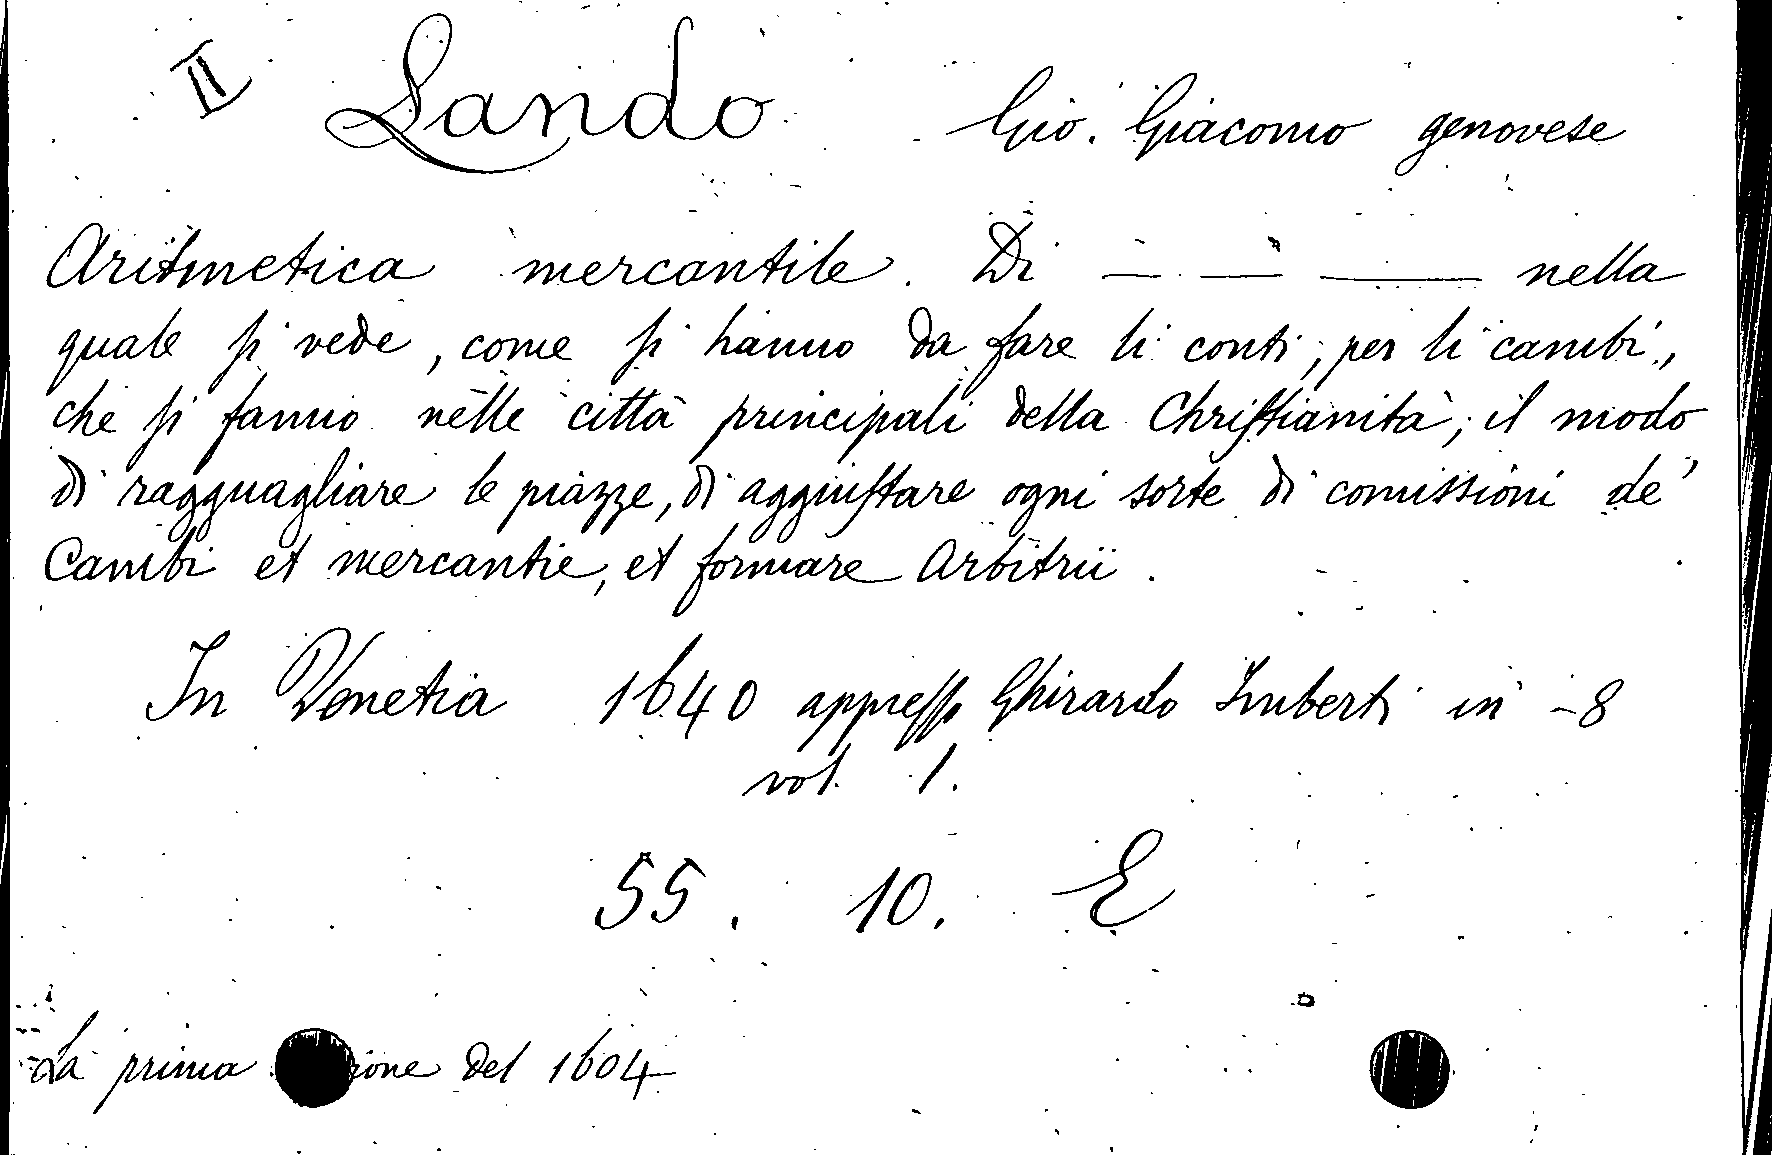 II Lando Gio. Giacomo genovese
Aritmetica mercantile. Di — — — nella
quale ſi vede, come ſi hanno da fare li conti, per li cambi,
che ſi fanno nelle città principali della Chriſtianità; il modo
di ragguagliare le piazze, di aggiuſtare ogni sorte di comissioni de'
Cambi et mercantie, et formare Arbitrii.
In Venetia 1640 appreſſo Ghirardo Imberti in -8
vol. 1.
55. 10. E
La prima del 1604